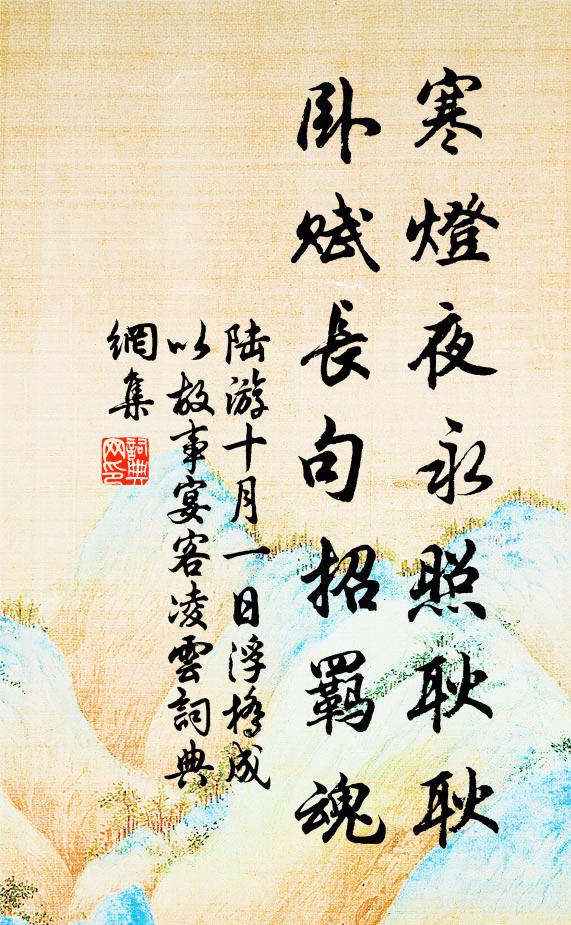 寒燈夜永照耿耿
臥賦長句招羁魂
陆游十月一日浮橋成
以故事宴客凌雲詞典
網集
詞典
网印